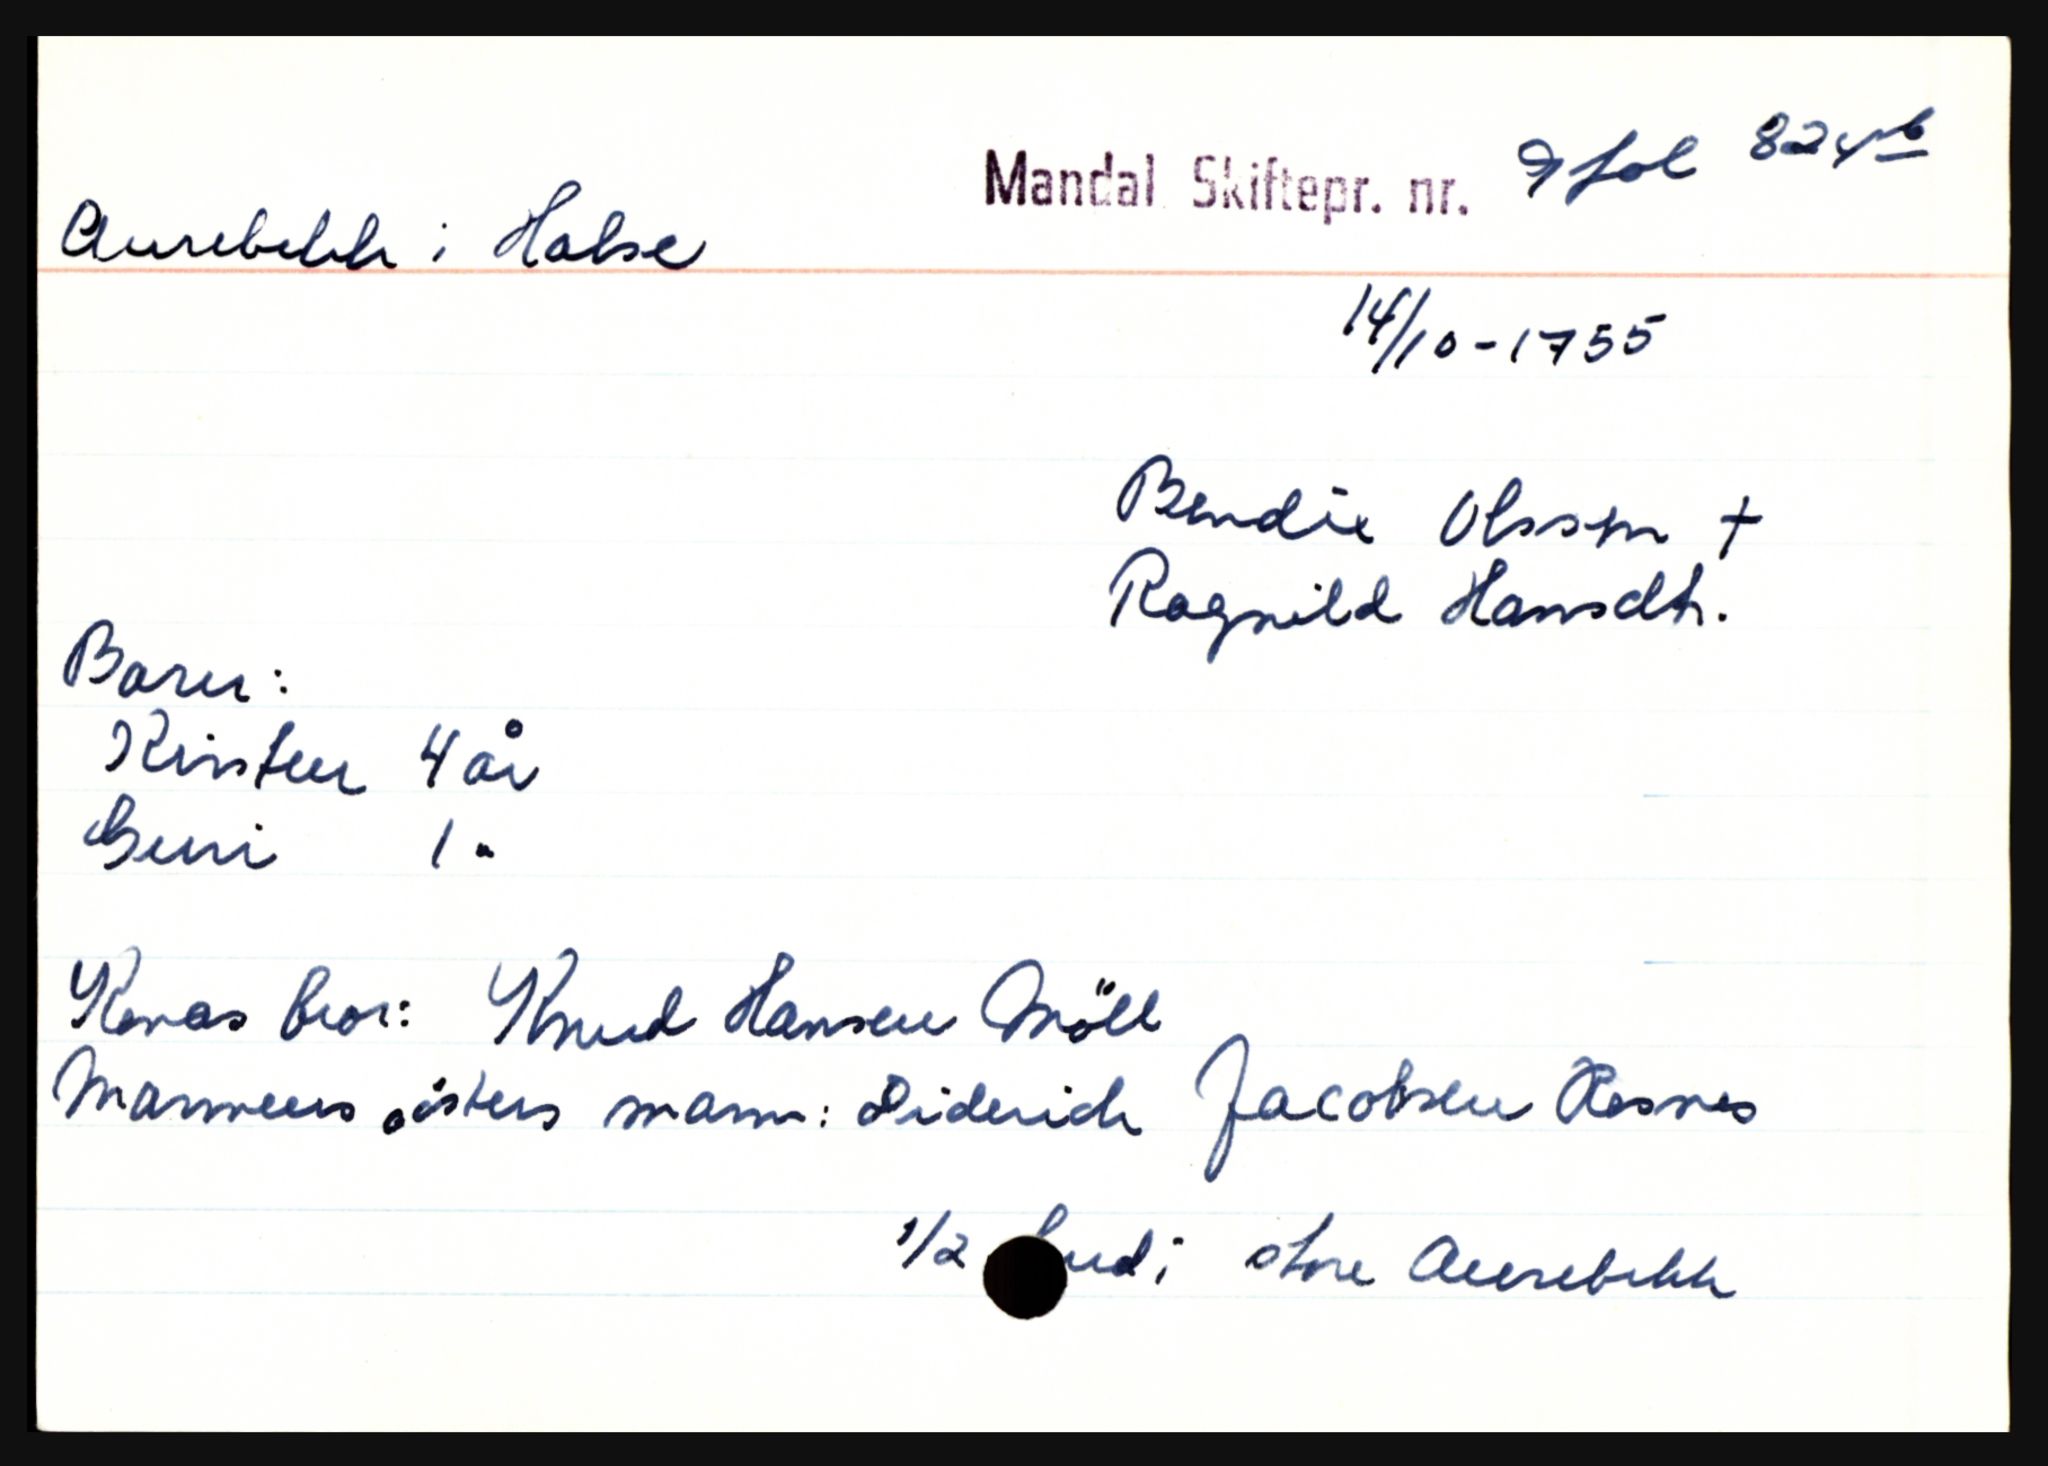 Mandal Skiftepr. nr. 9 fol 824b
Aurebekk i Halse
14/10-1755
Bendix Olssen †
Ragnild Hansdtr.
Barn:
Kirsten 4 år
Guri 1 "
Konas bror: Knud Hansen Möll
Mannens søsters mann: Diderich Jacobsen Resnes
1/2 hud i store Aurebekk